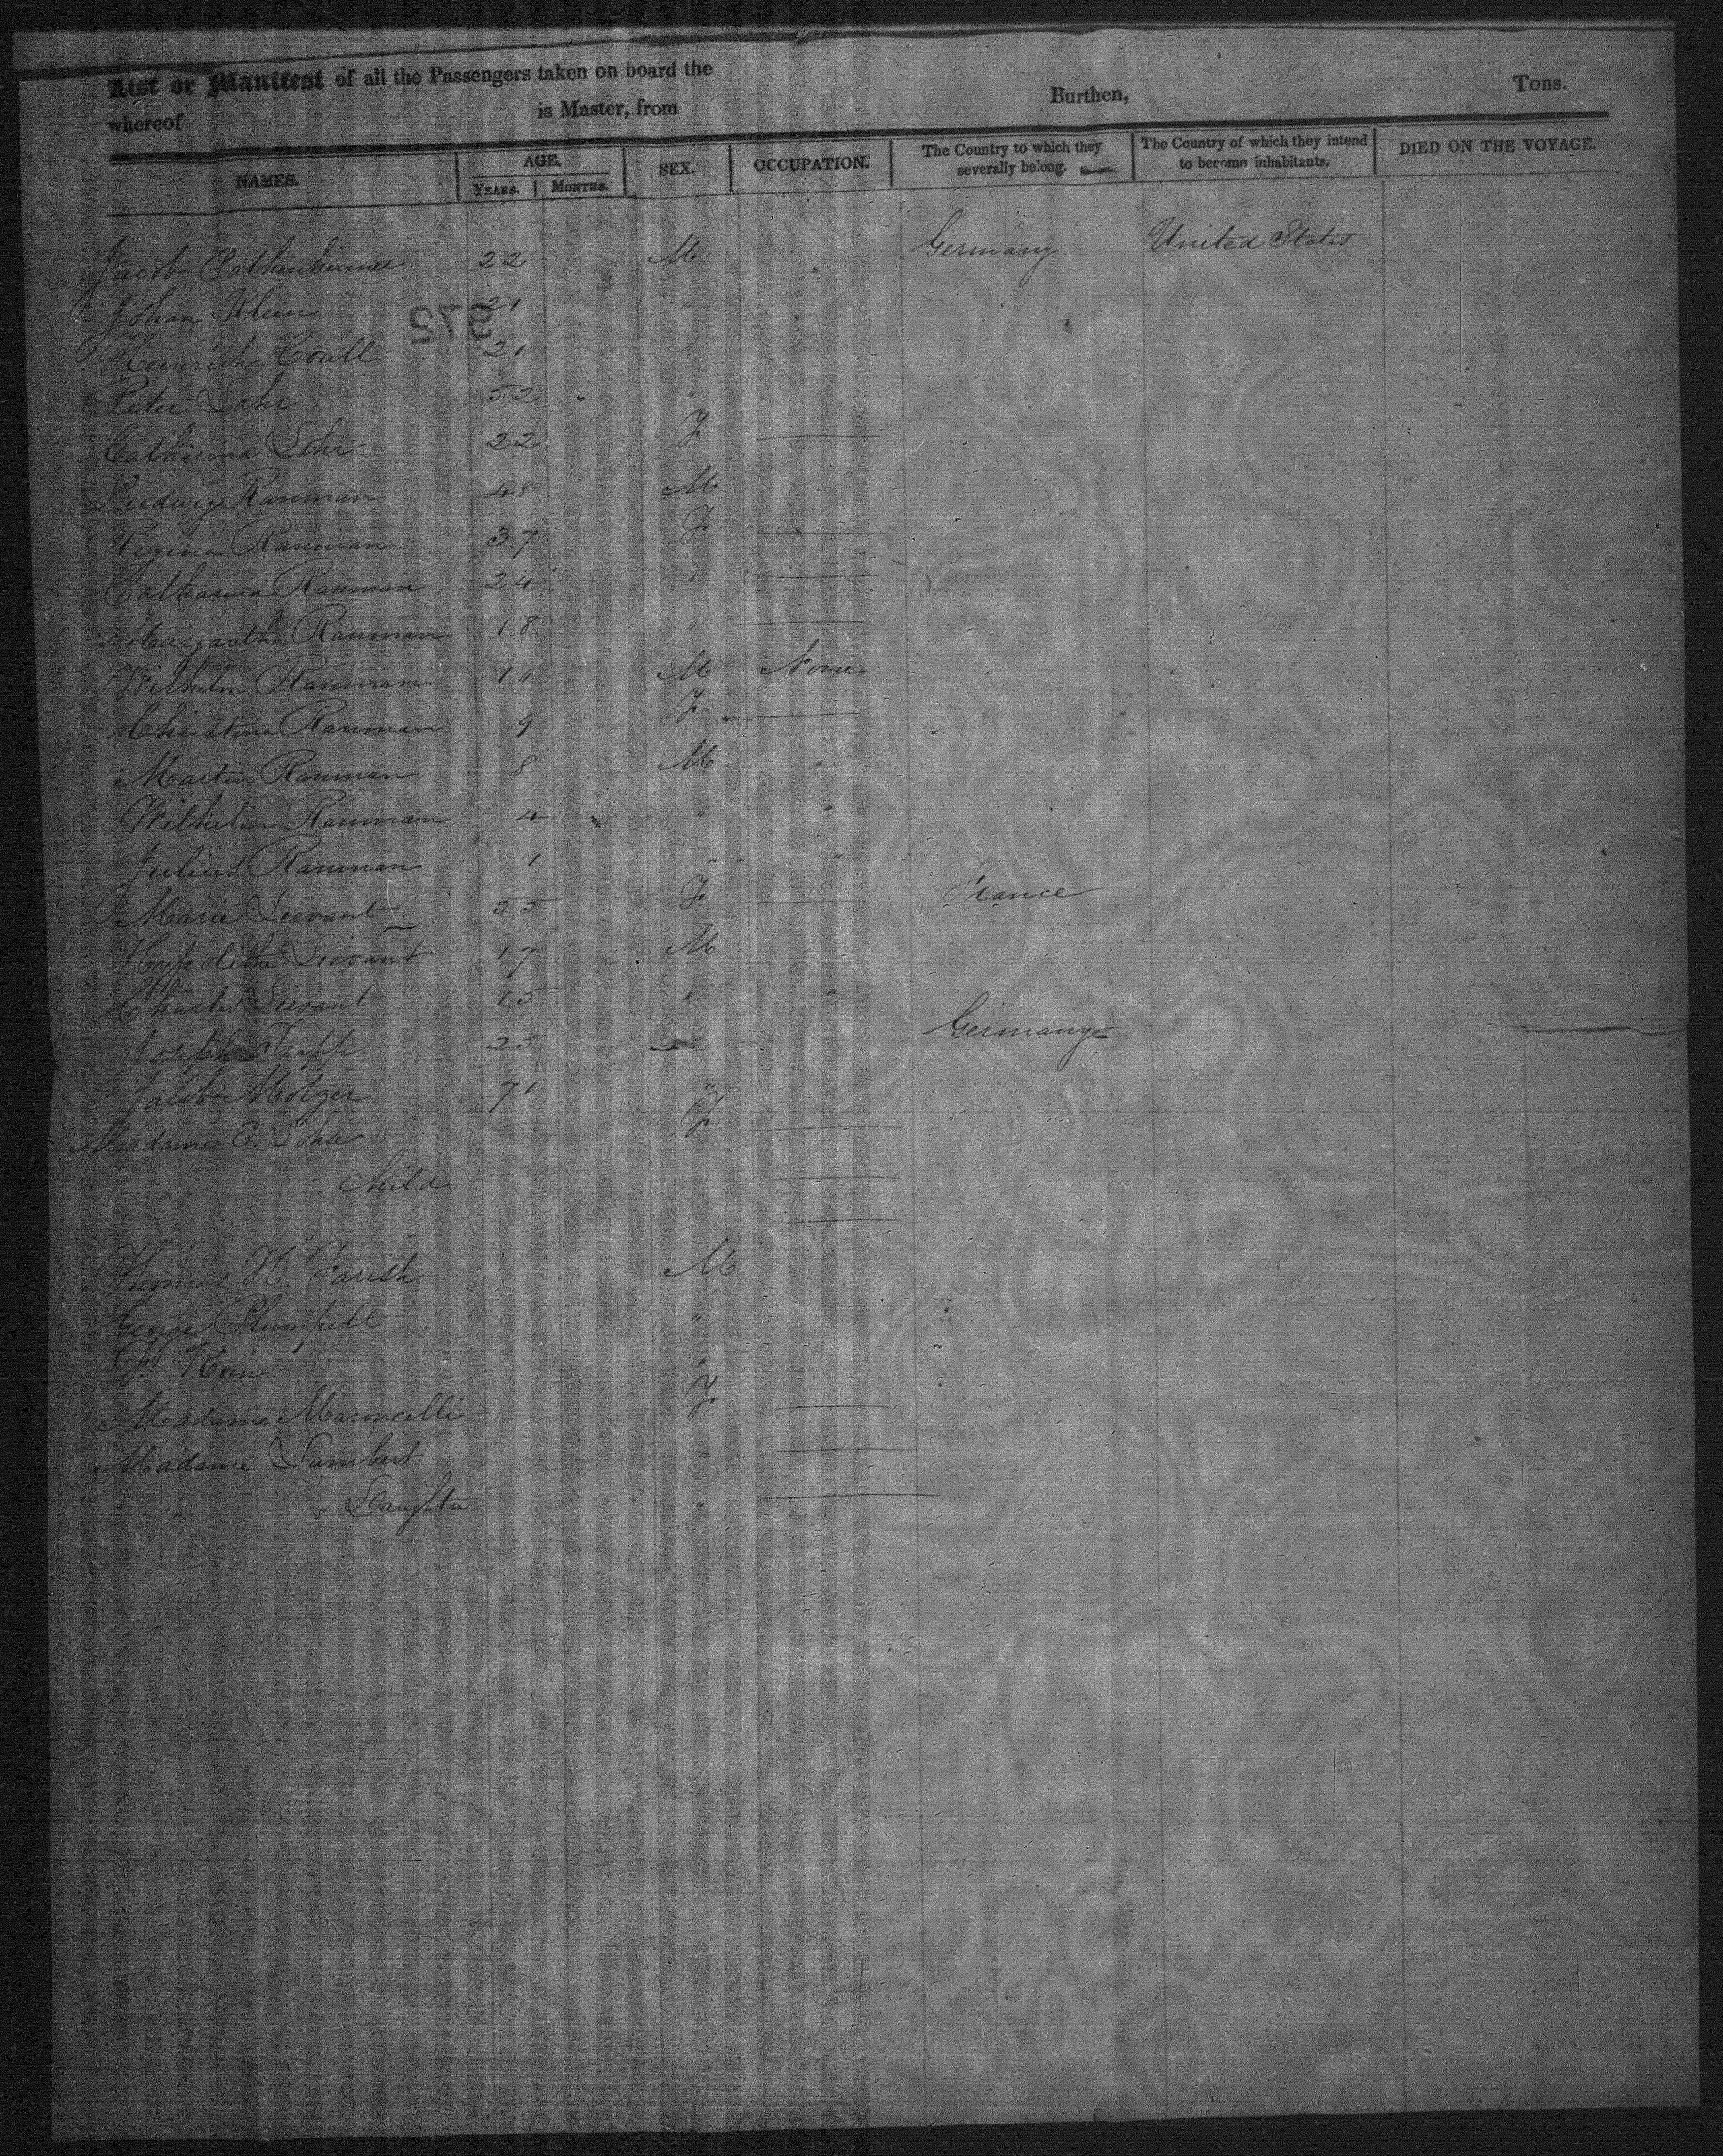 List or Manifest of all the Passengers taken on board the
whereof is Master, from Burthen, Tons.
NAMES. AGE. YEARS. MONTHS. SEX. OCCUPATION. The Country to which they severally belong. The Country of which they intend to become inhabitants. DIED ON THE VOYAGE.
Jacob 22 M Germany United States
Johan Klein 21 "
372
Heinrich Coull 21 "
Peter Lahr 52 " "
Catharina Lohr 22 F
Ludwig Rauman 48 M
Regina Rauman 37 F
Catharina Rauman 24 "
Margaretha Rauman 18 "
Wilhelm Rauman 10 M None
Christina Rauman 9 F
Martin Rauman 8 M "
Wilhelm Rauman 4 " "
Julius Rauman 1 " "
Marie Lievant 55 F France
Hypolithe Lievant 17 M
Charles Lievant 15 " "
Joseph Trapp 25 " Germany
Jacob Motzer 71 "
Madame E. F
" " Child
Thomas H. Farish M
George Plumpelt "
F. "
Madame Maroncelli F
Madame Lambert "
" " Daughter "